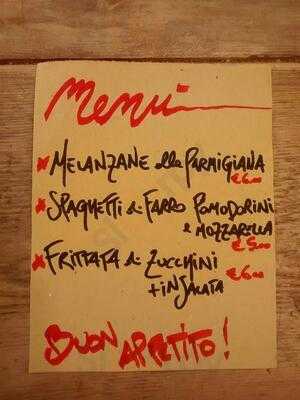 Menù
* MELANZANE alla PARMIGIANA
€6,00
* SPAGHETTI di FARRO POMODORINI
e MOZZARELLA
€5,00
* FRITTATA di ZUCCHINI
€6,00
+ INSALATA
BUON APPETITO!